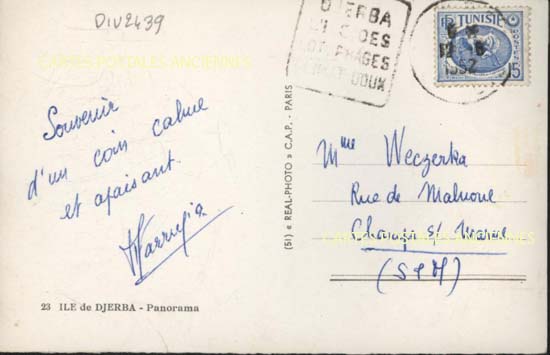 DIV2439
CARTES POSTALES ANCIENNES
Souvenir
d'un coin calme
et apaisant.
23 ILE de DJERBA - Panorama
(51) « REAL-PHOTO » C.A.P. - PARIS
DJERBA
DES
LOTOPHAGES
DOUX
1952
TUNISIE
15 15
Mme Weczerka
Rue de Malnoue
Champs s/ Marne
CARTES POSTALES ANCIENNES
(S & M)